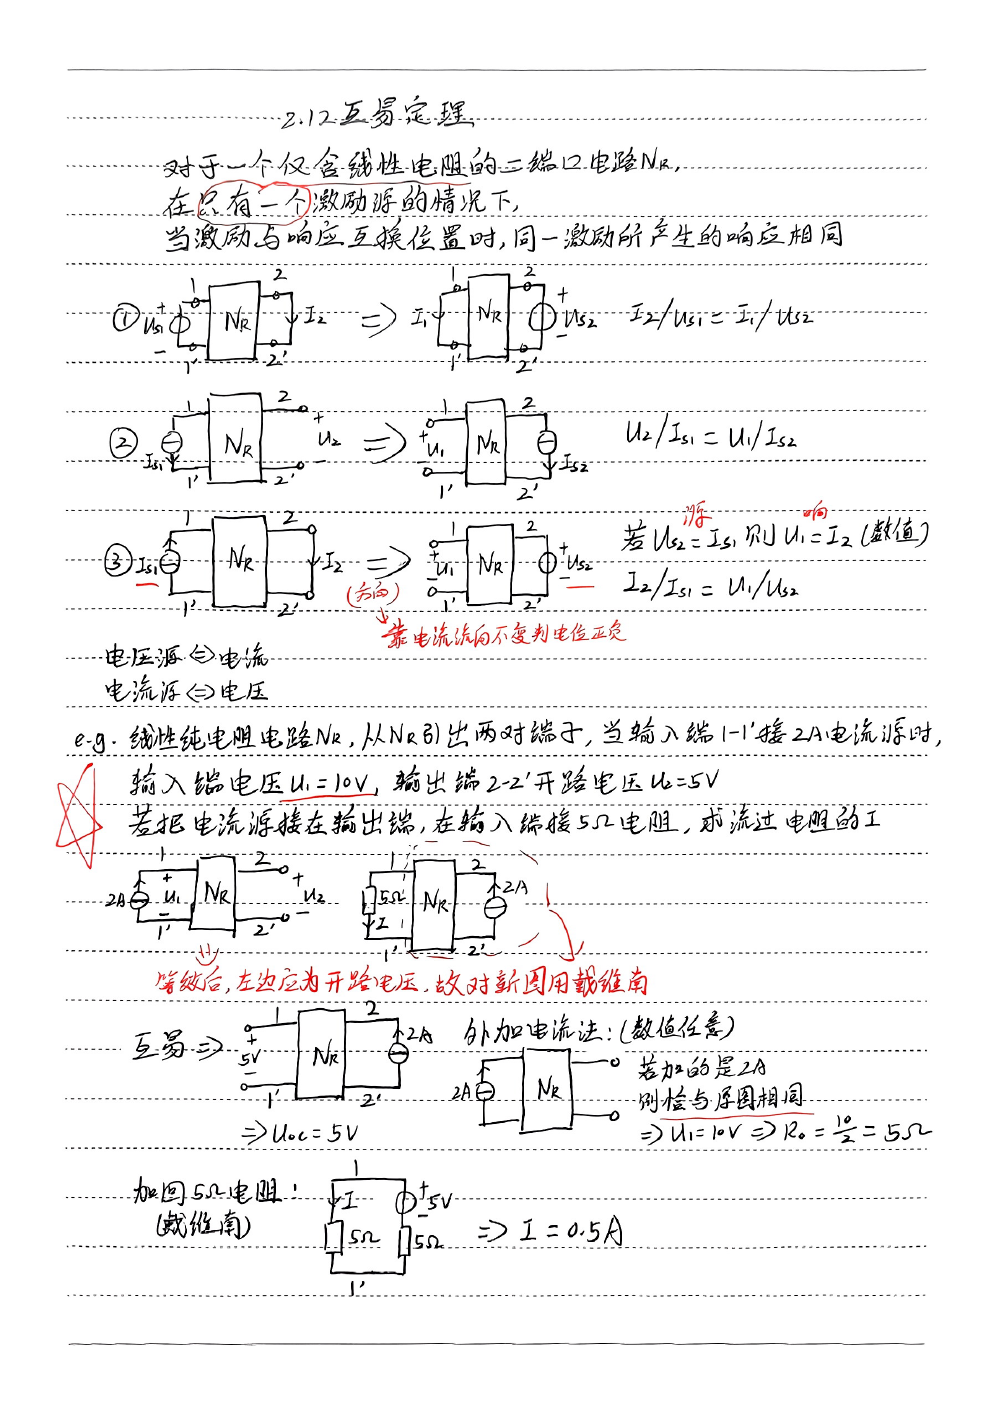 2.12互易定理
对于一个仅含线性电阻的二端口电路NR,
在只有一个激励源的情况下,
当激励与响应互换位置时,同一激励所产生的响应相同
① Us1 + - 1 1' NR 2 2' I2 => I1 1 1' NR 2 2' + Us2 - I2/Us1=I1/Us2
② Is1 1 1' NR 2 2' + U2 - => + U1 - 1 1' NR 2 2' Is2 U2/Is1=U1/Is2
③ Is1 1 1' NR 2 2' I2 => + U1 - 1 1' NR 2 2' + Us2 -
源 响
若Us2=Is1则U1=I2(数值)
I2/Is1=U1/Us2
(方向)
靠电流流向不变判电位正负
电压源<=>电流
电流源<=>电压
e.g. 线性纯电阻电路NR,从NR引出两对端子,当输入端1-1'接2A电流源时,
输入端电压U1=10V,输出端2-2'开路电压U2=5V
若把电流源接在输出端,在输入端接5Ω电阻,求流过电阻的I
2A 1 + U1 - 1' NR 2 2' + U2 - 1 5Ω I 1' NR 2 2' 2A
等效后,左边应为开路电压,故对新图用戴维南
互易=> 1 + 5V - 1' NR 2 2' 2A
=>Uoc=5V
外加电流法:(数值任意)
2A NR
若加的是2A
则恰与原图相同
=>U1=10V=>R0=10/2=5Ω
加回5Ω电阻:
(戴维南)
1 I 5Ω + 5V - 5Ω 1' => I=0.5A